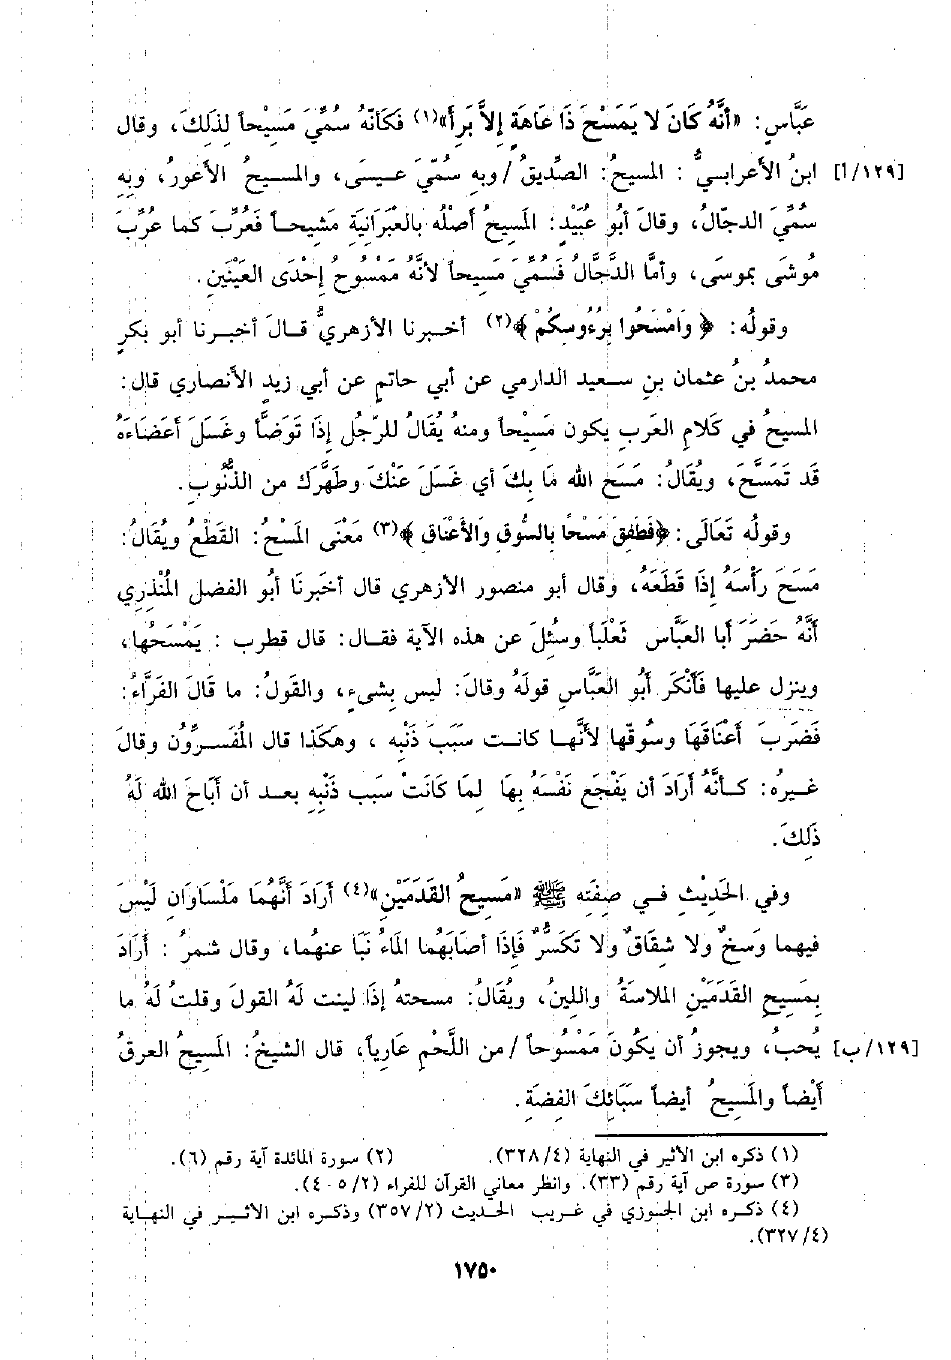 عَبَّاسٍ: «أنَّهُ كَانَ لا يَمَسْحَ ذَا عَاهَةٍ إِلاَّ بَرأَ»(١) فَكَأنّهُ سُمِّيَ مَسِيْحاً لذلِكَ، وقال
[١٢٩/أ] ابنُ الأعرابيُّ : المسيحُ: الصِّدِّيقُ / وبهِ سُمِّيَ عيسَى، والمسيحُ الأعورُ، وبِهِ
سُمِّيَ الدجّالُ، وقالَ أبُو عُبَيْدٍ: المَسِيحُ أصْلُه بالعِبَرانَيَةِ مَشيحاً فَعُرِّبَ كما عُرِّبَ
مُوشَى بموسَى، وأمَّا الدَّجَّالُ فَسُمِّيَ مَسِيحاً لأنَّهُ مَمْسُوحُ إحْدَى العَيْنَينِ.
وقولُه: ﴿ وَامْسَحُوا بِرُءُوسِكُمْ ﴾(٢) أخبرنا الأزهريُّ قالَ أخبرنا أبو بكرٍ
محمدُ بنُ عثمان بنِ سعيد الدارمي عن أبي حاتمٍ عن أبي زيدٍ الأنصاري قال:
المسيحُ في كَلامِ العَربِ يكون مَسِيْحاً ومنهُ يُقَالُ للرّجُلِ إذَا تَوَضَّأَ وغَسَلَ أَعَضَاءَهُ
قَد تَمَسَّحَ، ويُقَالُ: مَسَحَ الله مَا بِكَ أي غَسَلَ عَنْكَ وطَهَّرَك من الذُّنُوبِ.
وقولُه تَعَالَى: ﴿فَطَفِقَ مَسْحًا بِالسُّوقِ وَالأَعْنَاقِ ﴾(٣) مَعْنَى المَسْحُ: القَطْعُ ويُقَالُ:
مَسَحَ رَأْسَهُ إذَا قَطَعَهُ، وقال أبو منصور الأزهري قال أخبَرنَا أبُو الفضل المُنْذِري
أنَّهُ حَضَرَ أبا العَبَّاسِ ثَعْلَباً وسُئِلَ عن هذه الآية فقال: قال قطرب : يَمْسَحُها،
وينزل عليها فَأنْكَر أبُو العَبَّاسِ قولَهُ وقالَ: ليس بِشيءٍ، والقَولُ: ما قَالَ الفَرَّاءُ:
فَضَربَ أَعْنَاقَهَا وسُوقَها لأنَّها كانت سَبَبَ ذَنْبِه ، وهكَذا قال المُفَسرِّون وقالَ
غيرهُ: كأنَّهُ أرَادَ أن يَفْجَع نَفْسَهُ بِهَا لِمَا كَانَتْ سَبب ذَنْبِهِ بعد أن أبَاحَ الله لَهُ
ذَلكَ.
وفي الحَدِيْثِ في صِفَتِه ﷺ «مَسِيحُ القَدَمَيْنِ»(٤) أرَادَ أنَّهُمَا مَلْسَاوَانِ لَيْسَ
فيهما وَسَخٌ ولا شِقَاقٌ ولا تَكَسُّرٌ فَإِذَا أصَابَهُما المَاءُ نَبَا عنهُما، وقال شمرُ : أرَادَ
بِمَسِيحِ القَدَمَيْنِ الملاسَةُ واللينُ، ويُقَالُ: مسحتهُ إذَا لينت لَهُ القولَ وقلتُ لَهُ ما
[١٢٩/ب] يُحبُ، ويجوزُ أن يكُونَ مَمْسُوحاً / من اللَّحمِ عَارِياً، قال الشيخُ: المَسِيحُ العرقُ
أيْضاً والمَسِيحُ أيضاً سَبَائكَ الفِضَةِ.
(١) ذكره ابن الأثير في النهاية (٣٢٨/٤). (٢) سورة المائدة آية رقم (٦).
(٣) سورة ص آية رقم (٣٣). وانظر معاني القرآن للفراء (٤٠٥/٢).
(٤) ذكره ابن الجوزي في غريب الحديث (٣٥٧/٢) وذكره ابن الأثير في النهاية
(٣٢٧/٤).
١٧٥٠